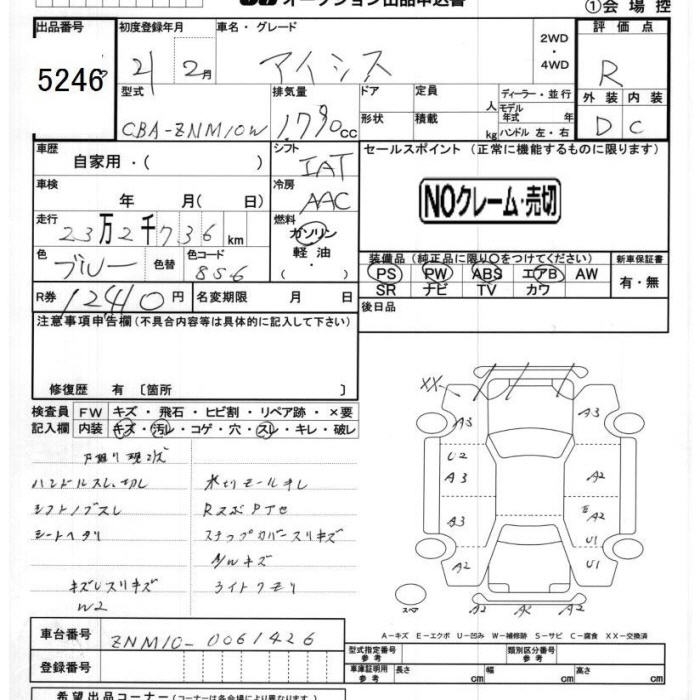 オークション出品申込書
①会場控
出品番号 初度登録年月 車名・グレード 2WD・4WD 評価点
5246 21年 2月 アイシス R
型式 排気量 ドア 定員 人 ディーラー・並行 外装 内装
CBA-ZNM10W 1,790cc 形状 積載 kg モデル年式 年 ハンドル 左・右 D C
車歴 自家用・( ) シフト IAT セールスポイント(正常に機能するものに限ります)
車検 年 月( 日) 冷房 AAC NOクレーム・売切
走行 23万2千736km 燃料 ガソリン・軽油・( )
色 ブルー 色替 色コード 8S6 装備品(純正品に限り〇をつけてください) 新車保証書
PS PW ABS エアB AW 有・無
SR ナビ TV カワ
R券 12410円 名変期限 月 日 後日品
注意事項申告欄(不具合内容等は具体的に記入して下さい)
修復歴 有[箇所 ]
検査員 FW キズ・飛石・ヒビ割・リペア跡・×要
記入欄 内装 キズ・汚レ・コゲ・穴・スレ・キレ・破レ
ハンドルスレ、切レ 水切モールキレ
シフトノブスレ
シートヘタリ ステップカバースリキズ
A/Wキズ
キズレスリキズ ライトクモリ
W2
XX A3 A3
U2
A3 A2
A3 A2
U1
A2 U1
A2 A2 A2
A-キズ E-エクボ U-凹み W-補修跡 S-サビ C-腐食 XX-交換済
車台番号 ZNM10-0061426
登録番号
型式指定番号 参考 類別区分番号 参考
車庫証明用 参考 長さ cm 幅 cm 高さ cm
希望出品コーナー(コーナーは各会場により異なります)